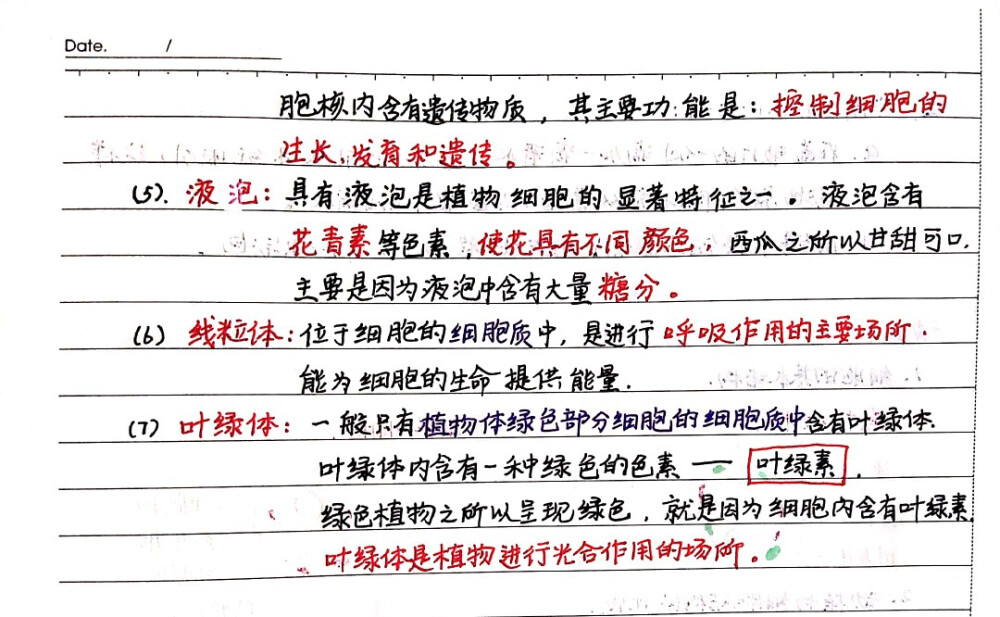 Date. /
胞核内含有遗传物质，其主要功能是：控制细胞的
生长,发育和遗传。
(5). 液泡：具有液泡是植物细胞的显著特征之一。液泡含有
花青素等色素,使花具有不同颜色,西瓜之所以甘甜可口.
主要是因为液泡中含有大量糖分。
(6) 线粒体：位于细胞的细胞质中，是进行呼吸作用的主要场所.
能为细胞的生命提供能量.
(7) 叶绿体：一般只有植物体绿色部分细胞的细胞质中含有叶绿体.
叶绿体内含有一种绿色的色素——叶绿素.
绿色植物之所以呈现绿色,就是因为细胞内含有叶绿素.
叶绿体是植物进行光合作用的场所。